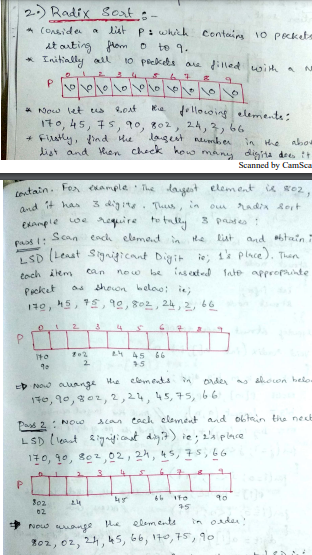 2.) Radix Sort :-
* Consider a list P: which contains 10 pockets
starting from 0 to 9.
* Initially all 10 pockets are filled with a N
0 1 2 3 4 5 6 7 8 9
P \0 \0 \0 \0 \0 \0 \0 \0 \0 \0
* Now let us sort the following elements:
170, 45, 75, 90, 802, 24, 2, 66
* Firstly, find the largest number in the abov
list and then check how many digits does it
Scanned by CamSca
contain. For example: The largest element is 802,
and it has 3 digits. Thus, in our Radix Sort
example we require totally 3 passes:
Pass 1: Scan each element in the list and obtain i
LSD (Least Significant Digit ie; 1's place). Then
each item can now be inserted into appropriate
pocket as shown below: ie;
170, 45, 75, 90, 802, 24, 2, 66
0 1 2 3 4 5 6 7 8 9
P
170 802 24 45 66
90 2 75
⇒ Now arrange the elements in order as shown belo
170, 90, 802, 2, 24, 45, 75, 66
Pass 2: Now scan each element and obtain the next
LSD (least significant digit) ie; place
170, 90, 802, 02, 24, 45, 75, 66
0 1 2 3 4 5 6 7 8 9
P
802 24 45 66 170 90
02 75
⇒ Now arrange the elements in order:
802, 02, 24, 45, 66, 170, 75, 90